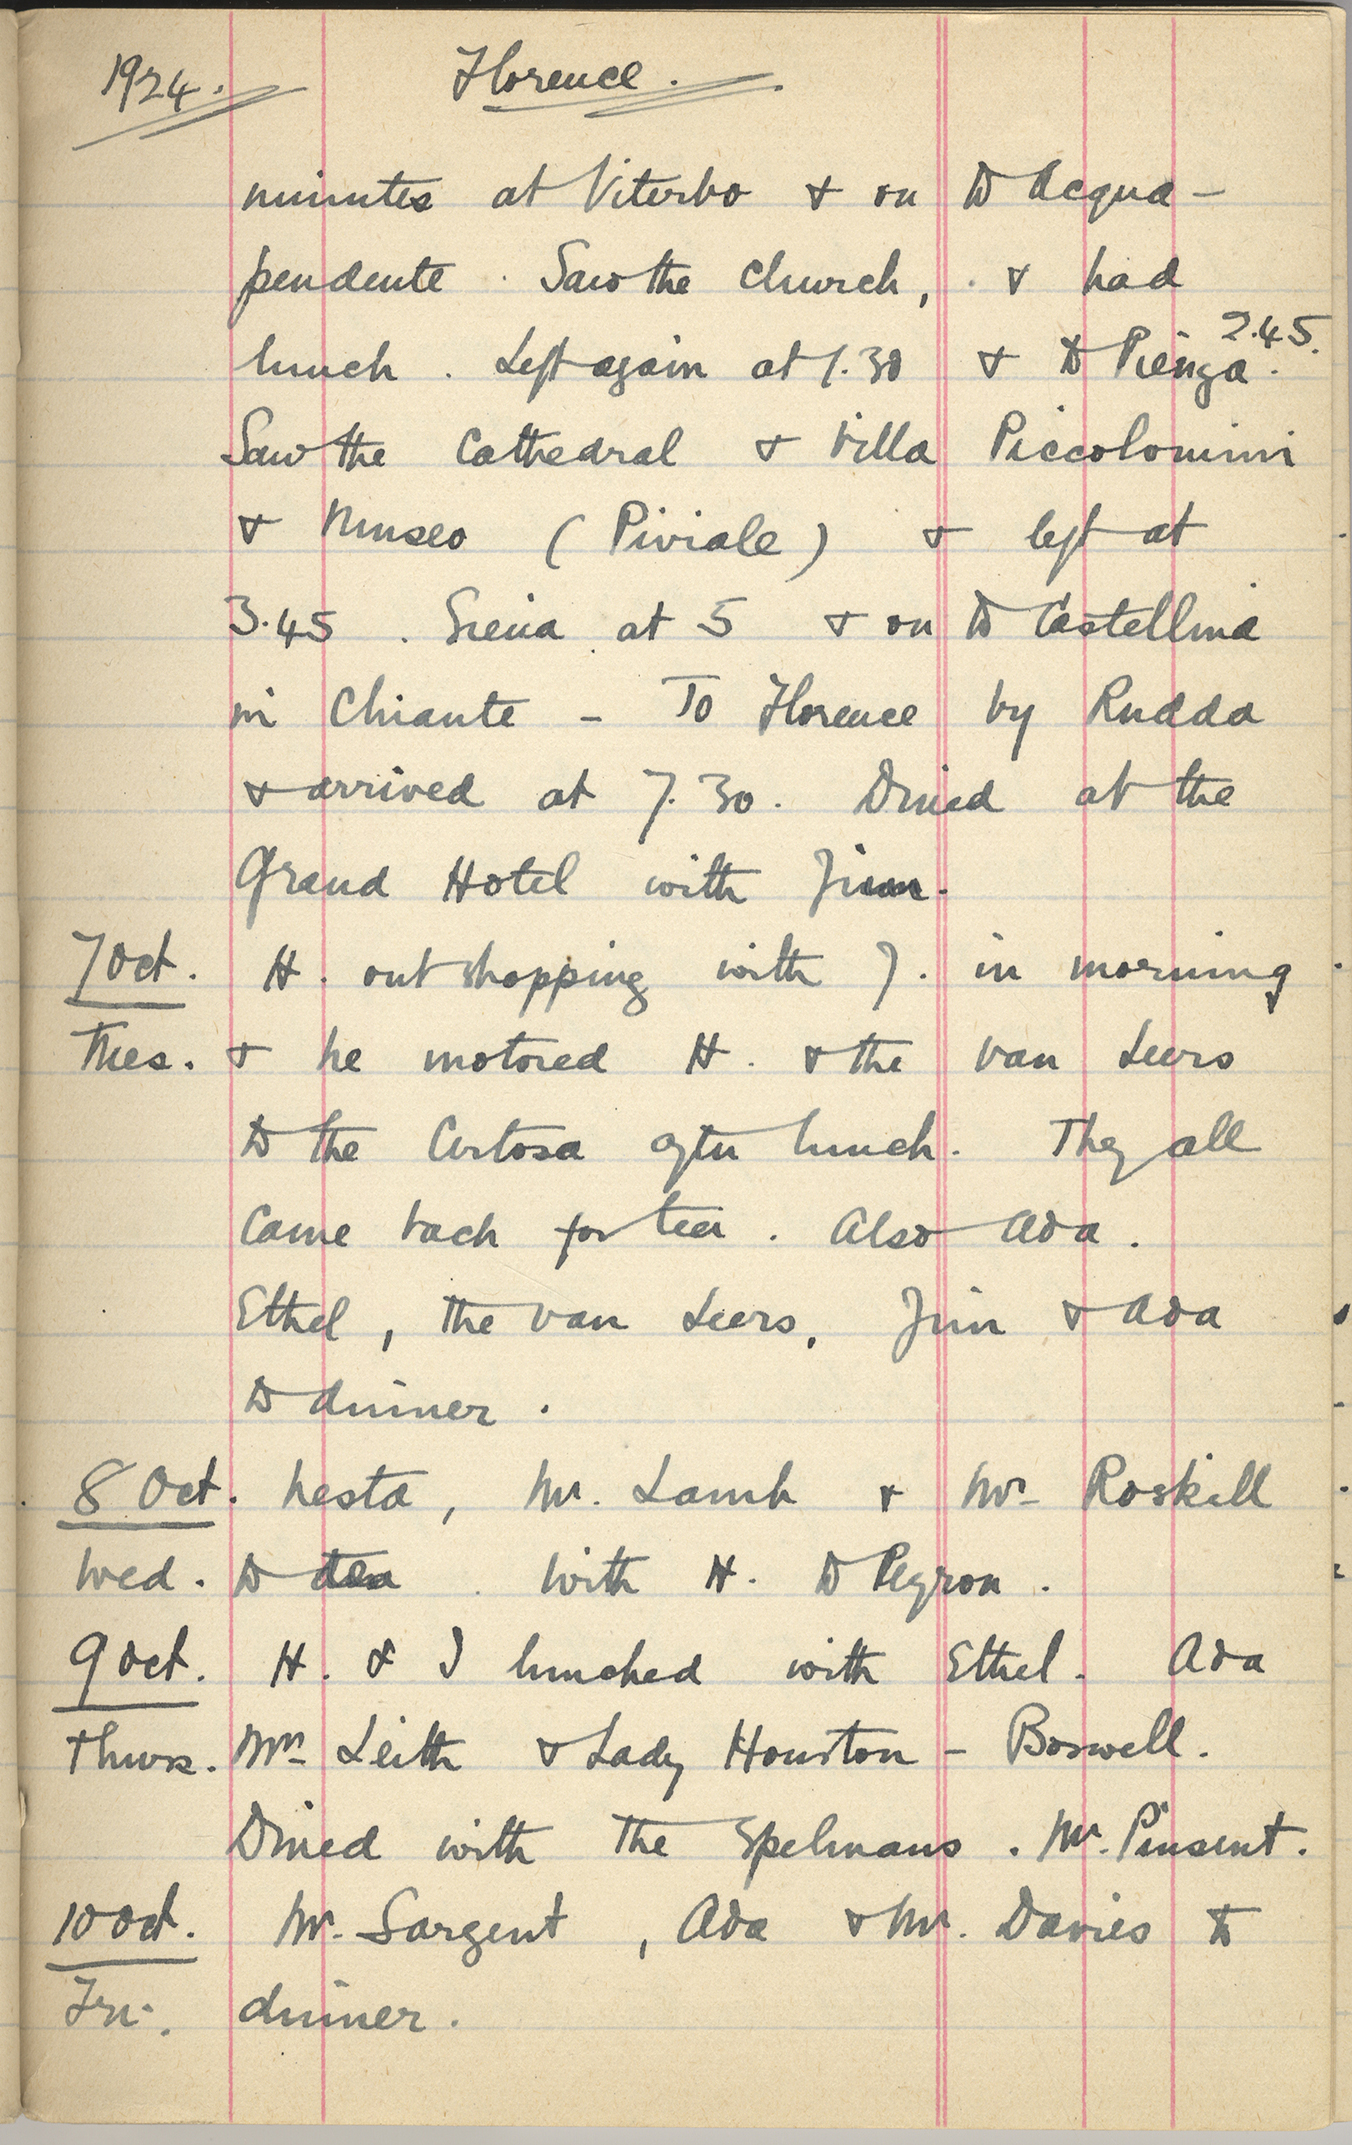 1924. Florence.
minutes at Viterbo & on to Acqua-
pendente. Saw the Church, & had
lunch. Left again at 1.30 & to Pienza. 2.45.
Saw the Cathedral & Villa Piccolomini
& Museo (Piviale) & left at
3.45. Siena at 5 & on to Castellina
in Chiante - To Florence by Rudda
& arrived at 7.30. Dined at the
Grand Hotel with Jim.
7 Oct. H. out shopping with J. in morning
Tues. & he motored H. & the van Leers
to the Certosa after lunch. They all
came back for tea. Also Ada.
Ethel, the van Leers, Jim & Ada
to dinner.
8 Oct. Nesta, Mr. Lamb & Mr Roskill
Wed. to tea. With H. to Peyron.
9 Oct. H. & I lunched with Ethel. Ada
Thurs. Mrs Leith & Lady Houston - Boswell.
Dined with the Spelmans. Mr. Pinsent.
10 Oct. Mr. Sargent, Ada & Mr. Davies to
Fri. dinner.